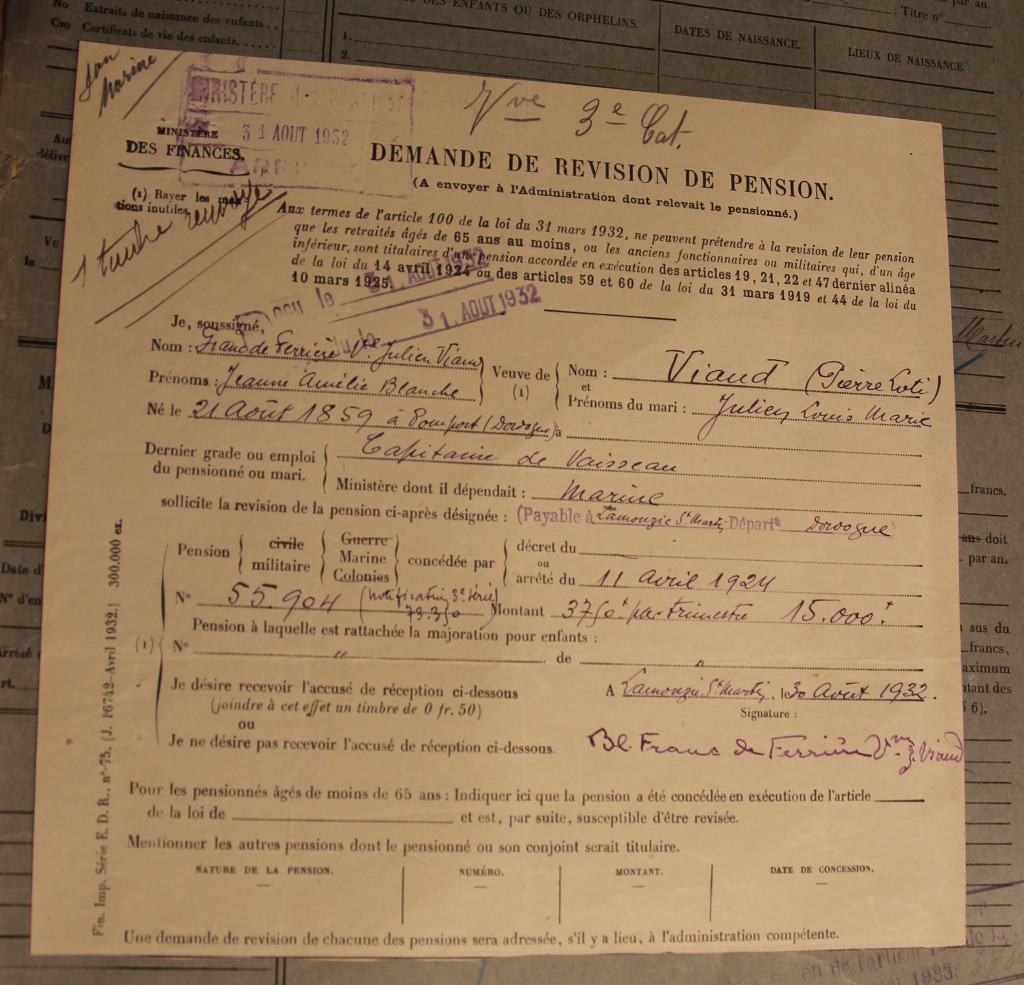 No Extraits de naissance des enfants.....
Cro Certificats de vie des enfants.....
DES ENFANTS OU DES ORPHELINS.
DATES DE NAISSANCE.
LIEUX DE NAISSANCE
Titre n°
par an.
1.
2.
Marine
MINISTÈRE
31 AOUT 1932
Vve 3e Cat.
MINISTÈRE
DES FINANCES.
DEMANDE DE REVISION DE PENSION.
(A envoyer à l'Administration dont relevait le pensionné.)
(1) Rayer les men-
tions inutiles.
1 timbre
Aux termes de l'article 100 de la loi du 31 mars 1932, ne peuvent prétendre à la revision de leur pension
que les retraités âgés de 65 ans au moins, ou les anciens fonctionnaires ou militaires qui, d'un âge
inférieur, sont titulaires d'une pension accordée en exécution des articles 19, 21, 22 et 47 dernier alinéa
de la loi du 14 avril 1924 ou des articles 59 et 60 de la loi du 31 mars 1919 et 44 de la loi du
10 mars 1925.
31 AOUT 1932
31 AOUT 1932
Je, soussigné,
Nom : Franc de Ferrière Vve Julien Viaud
Prénoms : Jeanne Amélie Blanche
Veuve de
(1)
Nom : Viaud (Pierre Loti)
et
Prénoms du mari : Julien Louis Marie
Né le 21 Août 1859 à Pomport (Dordogne) à
Dernier grade ou emploi
du pensionné ou mari.
Capitaine de Vaisseau
Ministère dont il dépendait : Marine
sollicite la revision de la pension ci-après désignée : (Payable à Lamonzie St Martin Départt Dordogne
Pension
civile
militaire
Guerre
Marine
Colonies
concédée par
décret du
ou
arrêté du 11 Avril 1924
N° 55.904 (notification 3e série)
79.350
Montant 3750f par trimestre 15.000f
Pension à laquelle est rattachée la majoration pour enfants :
(1)
N° " de "
Je désire recevoir l'accusé de réception ci-dessous
(joindre à cet effet un timbre de 0 fr. 50)
ou
Je ne désire pas recevoir l'accusé de réception ci-dessous.
A Lamonzie St Martin, le 30 Août 1932.
Signature :
Bl. Franc de Ferrière Vve J. Viaud
Pour les pensionnés âgés de moins de 65 ans : Indiquer ici que la pension a été concédée en exécution de l'article
de la loi de et est, par suite, susceptible d'être revisée.
Mentionner les autres pensions dont le pensionné ou son conjoint serait titulaire.
NATURE DE LA PENSION.
NUMÉRO.
MONTANT.
DATE DE CONCESSION.
Une demande de revision de chacune des pensions sera adressée, s'il y a lieu, à l'administration compétente.
Fin. Imp. Série E. D. R., n° 75. (J. 16742-Avril 1932.) 300.000 ex.
francs.
ans doit
par an.
sus du
francs,
§ 6).